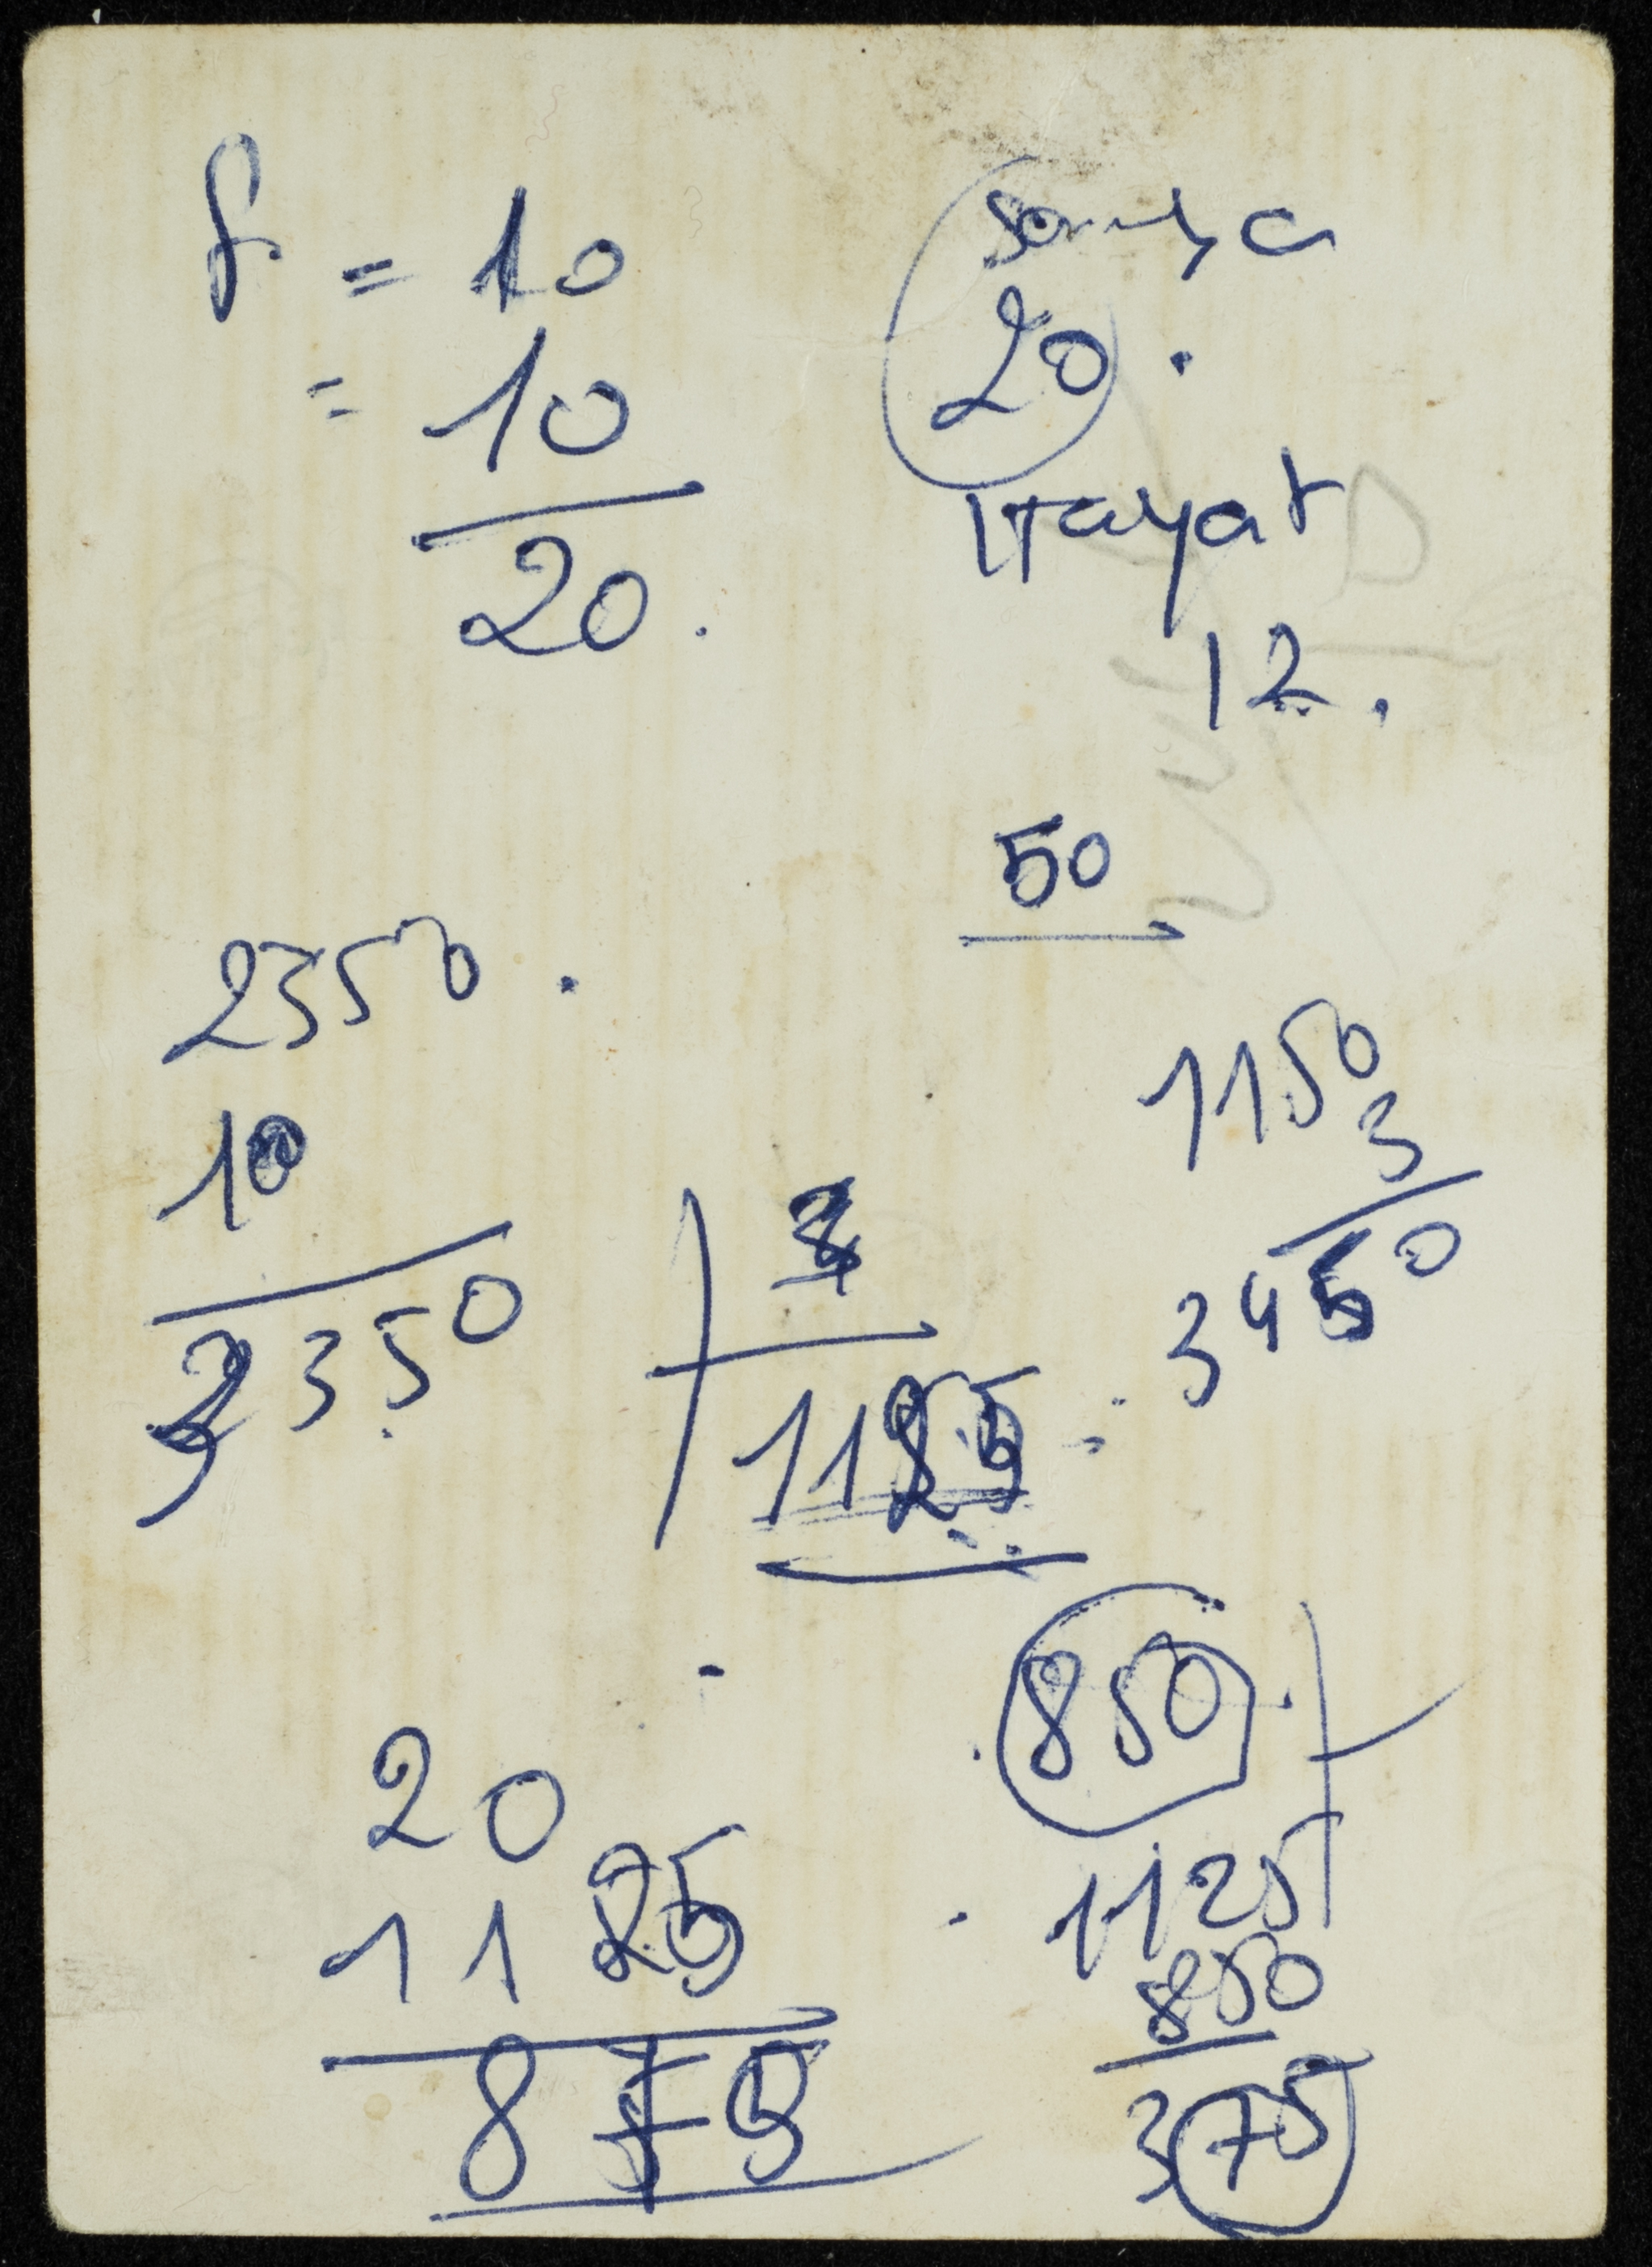 f. = 10
= 10
20.
20.
Hayat
12.
50
2350.
10
3350
1150
3
3450
1125
850
20
1125
875
1125
850
375